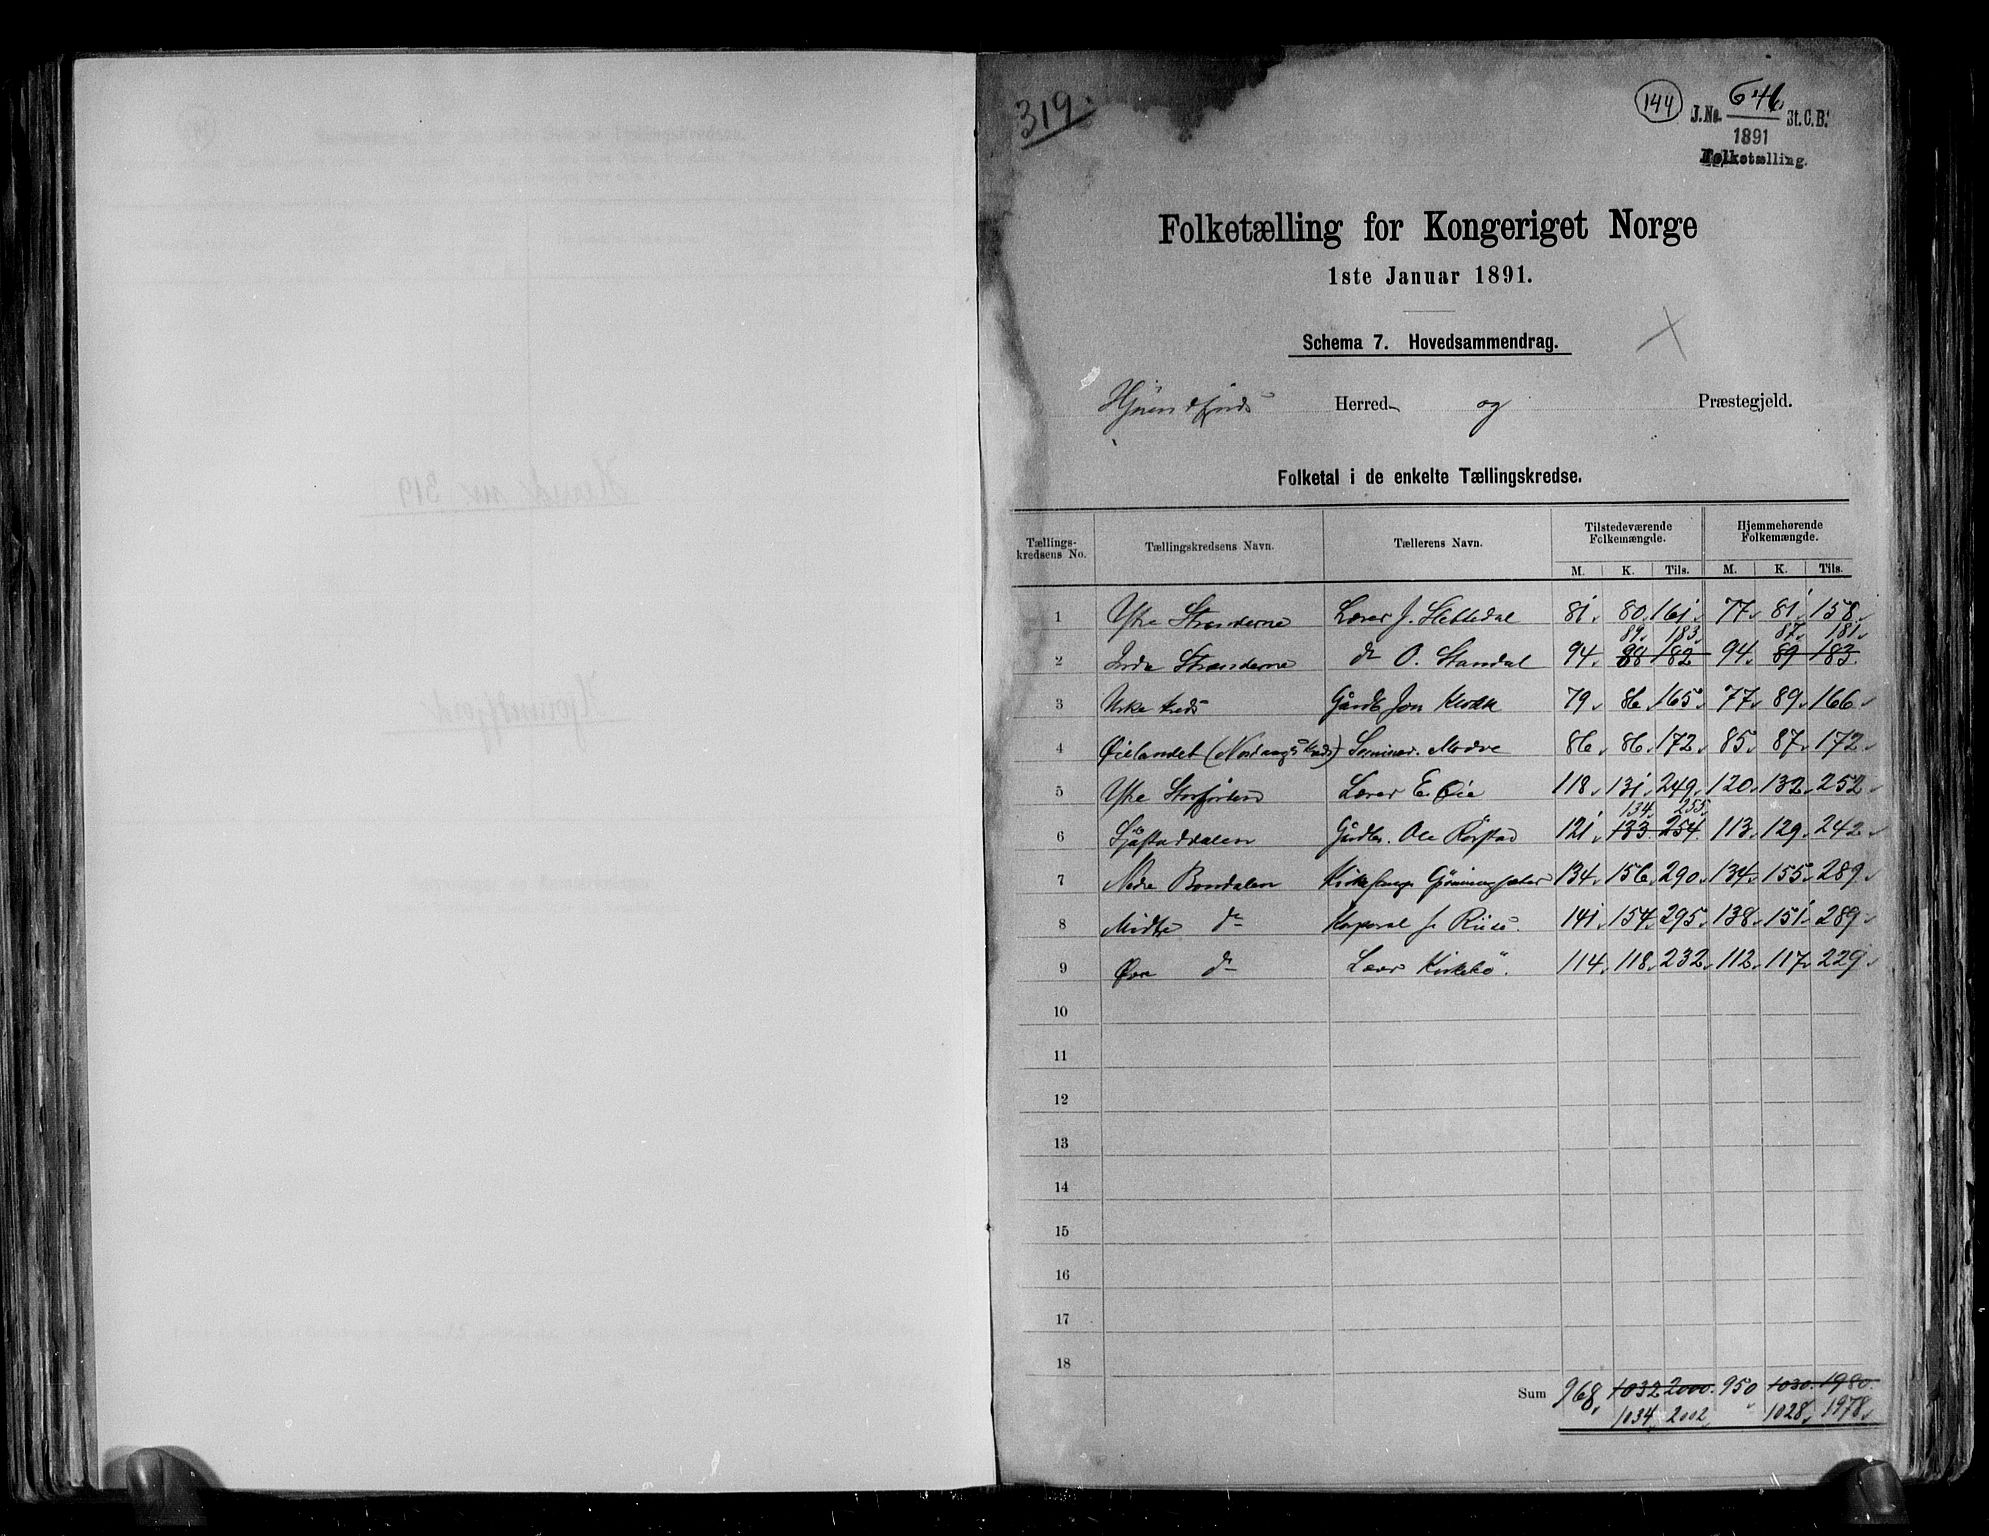 319.
144
J.No. 646 St.C.B.
1891
Folketælling.
Folketælling for Kongeriget Norge
1ste Januar 1891.
Schema 7. Hovedsammendrag.
Hjörundfjords Herred og Præstegjeld.
Folketal i de enkelte Tællingskredse.
Tællings-kredsens No. Tællingskredsens Navn. Tællerens Navn. Tilstedeværende Folkemængde. Hjemmehørende Folkemængde.
M. K. Tils. M. K. Tils.
1 Ytre Stranderne Lærer J. Slettedal 81 80 161 77 81 158
89 183 87 181
2 Indre Stranderne do O. Standal 94 88 182 94 89 183
3 Urke kreds Gårdb. Jon 79 86 165 77 89 166
4 Øielandet (Nordangs Kreds) Seminar. Modve 86 86 172 85 87 172
5 Ytre Storfjorden Lærer E. Øie 118 131 249 120 132 252
134 255
6 Sjåstaddalen Gårdbr. Ole Rörstad 121 133 254 113 129 242
7 Nedre Bondalen Kirkesanger 134 156 290 134 155 289
8 Midtre do Korporal J. Riise 141 154 295 138 151 289
9 Øvre do Lærer Kirkebö 114 118 232 112 117 229
10
11
12
13
14
15
16
17
18
Sum 968 1032 2000 950 1030 1980
1034 2002 1028 1978